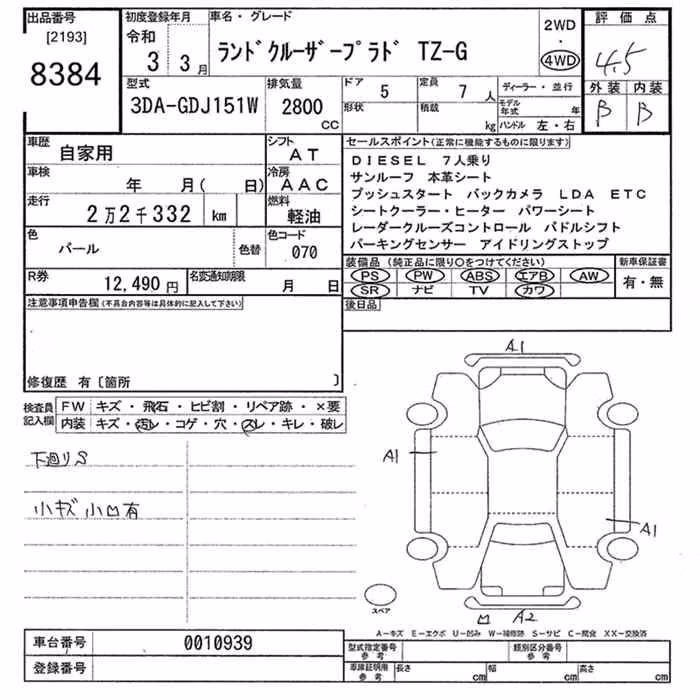 出品番号 初度登録年月 車名・グレード 評価点
[2193] 令和 2WD
8384 3 3月 ランドクルーザープラド TZ-G ・ 4WD 4.5
型式 排気量 ドア 5 定員 7人 ディーラー・並行 外装 内装
3DA-GDJ151W 2800cc 形状 積載 kg モデル年式 年 B B
ハンドル 左・右
車歴 自家用 シフト AT セールスポイント(正常に機能するものに限ります)
車検 年 月( 日) 冷房 AAC DIESEL 7人乗り
サンルーフ 本革シート
走行 2万2千332 km 燃料 軽油 プッシュスタート バックカメラ LDA ETC
シートクーラー・ヒーター パワーシート
色 パール 色替 色コード 070 レーダークルーズコントロール パドルシフト
パーキングセンサー アイドリングストップ
R券 12,490円 名変通知期限 月 日 装備品(純正品に限り○をつけてください) 新車保証書
PS PW ABS エアB AW 有・無
SR ナビ TV カワ
注意事項申告欄(不具合内容等は具体的に記入して下さい) 後日品
修復歴 有〔箇所 〕
検査員記入欄 FW キズ・飛石・ヒビ割・リペア跡・×要
内装 キズ・汚レ・コゲ・穴・スレ・キレ・破レ
A1
下廻りS
A1
小キズ小凹有
A1
スペア
凹 A2
A-キズ E-エクボ U-凹み W-補修跡 S-サビ C-腐食 XX-交換済
車台番号 0010939 型式指定番号 参考 類別区分番号 参考
登録番号 車庫証明用 参考 長さ cm 幅 cm 高さ cm